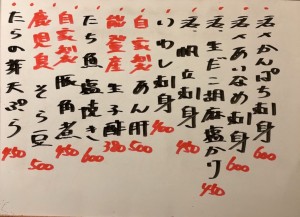 活〆かんぱち刺身 600
活〆あいなめ刺身 600
活生だこ胡麻塩かり 480
活帆立刺身 450
いわし刺身 400
自家製あん肝 500
能登産生子酢 380
たち魚塩焼き 600
自家製豚角煮 480
鹿児島そら豆 500
たらの芽天ぷら 450